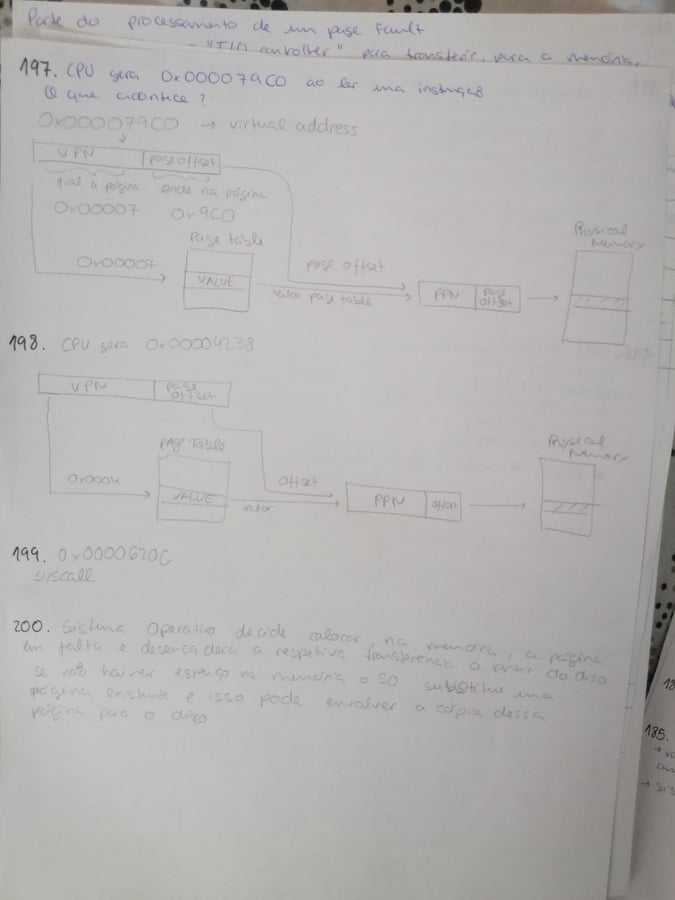 Parte do processamento de um page fault
- "DMA controller" para transferir para a memória.
197. CPU gera 0x000079C0 ao ler uma instrução
O que acontece?
0x000079C0 → virtual address
VPN page offset
qual a página onde na página
0x00007 0x9C0
Page table
0x00007
VALUE
page offset
valor page table
PPN page offset
Physical Memory
198. CPU gera 0x00004238
VPN page offset
page Table
0x0004
VALUE
valor
offset
PPN offset
Physical Memory
199. 0x0000620C
syscall
200. Sistema Operativo decide colocar, na memória, a página
em falta e desencadeia a respetiva transferência a partir do disco
se não houver espaço na memória o SO substitui uma
página existente e isso pode envolver a cópia dessa
página para o disco
185.